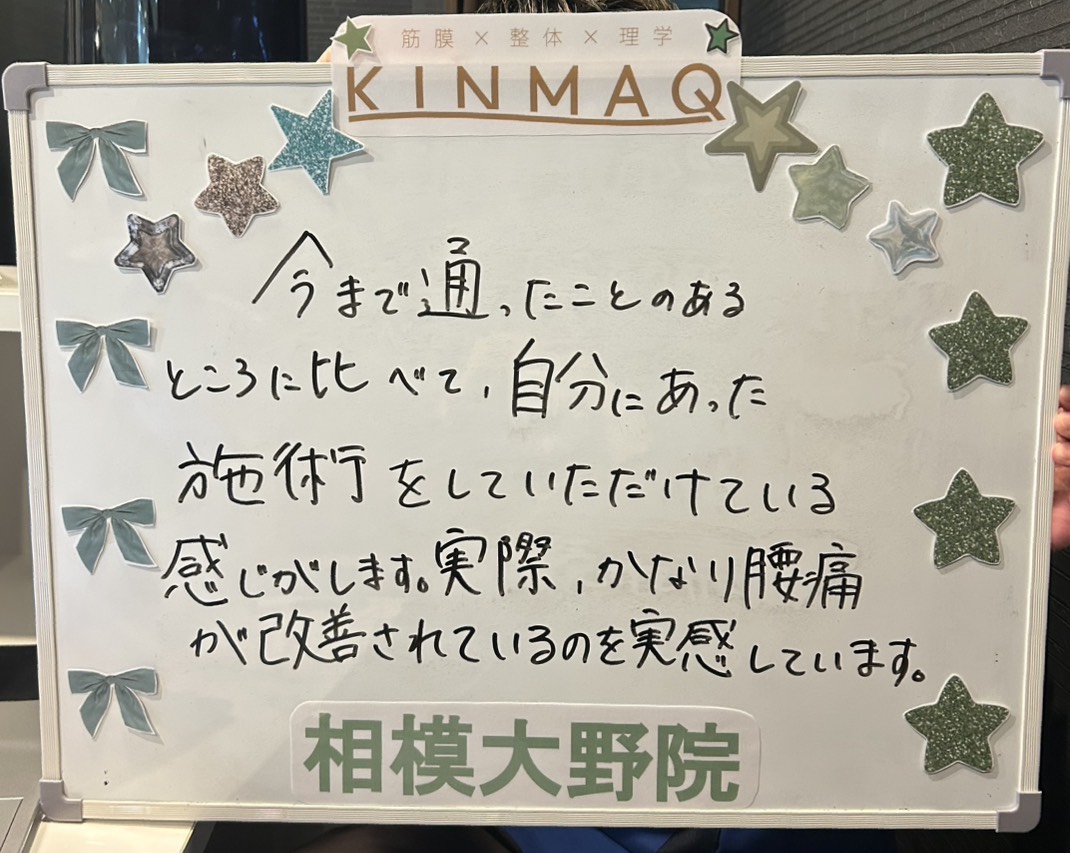 筋膜×整体×理学
KINMAQ
今まで通ったことのある
ところに比べて、自分にあった
施術をしていただけている
感じがします。実際、かなり腰痛
が改善されているのを実感しています。
相模大野院